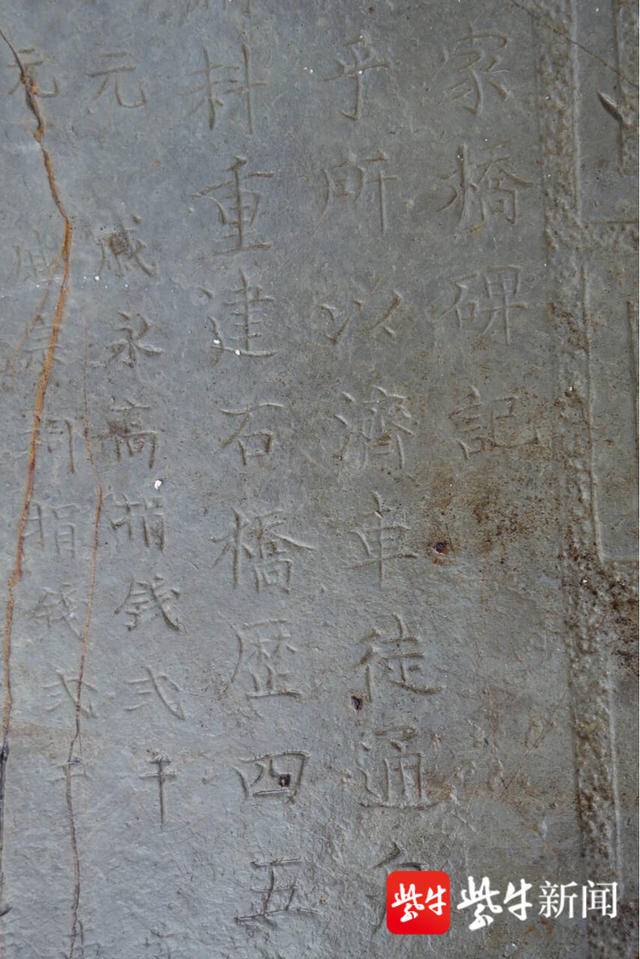 家橋碑記
乎所以濟車徒通
料重建石橋歷四五
元 戚永高捐錢弍千
元 戚宗祠捐錢弍千
紫牛 紫牛新闻